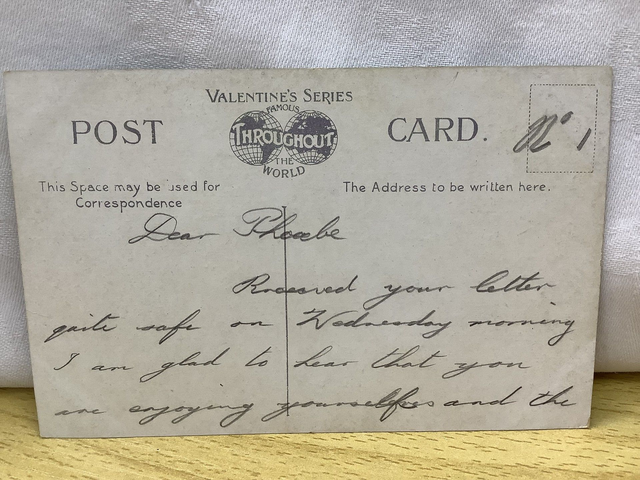 VALENTINE'S SERIES
FAMOUS
THROUGHOUT
THE
WORLD
POST CARD.
No 1
This Space may be used for
Correspondence
The Address to be written here.
Dear Phoebe
Received your letter
quite safe on Wednesday morning
I am glad to hear that you
are enjoying yourselfs and the